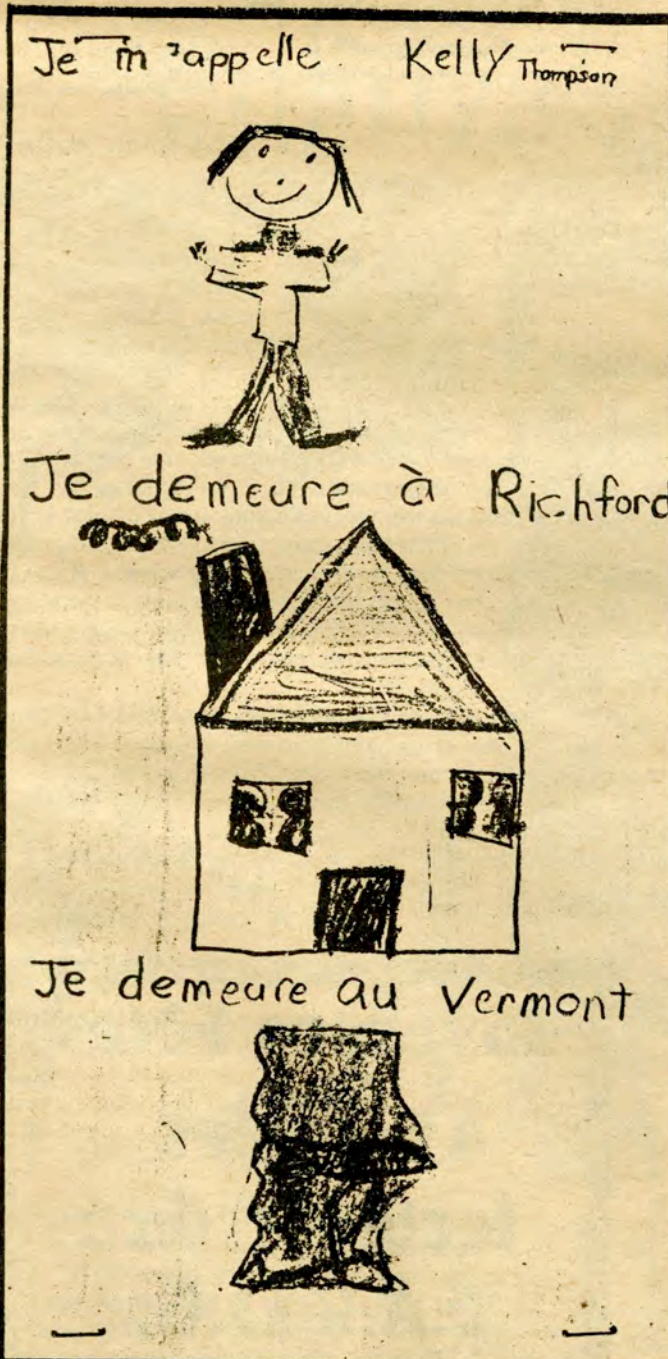 Je m'appelle Kelly Thompson
Je demeure à Richford
Je demeure au Vermont